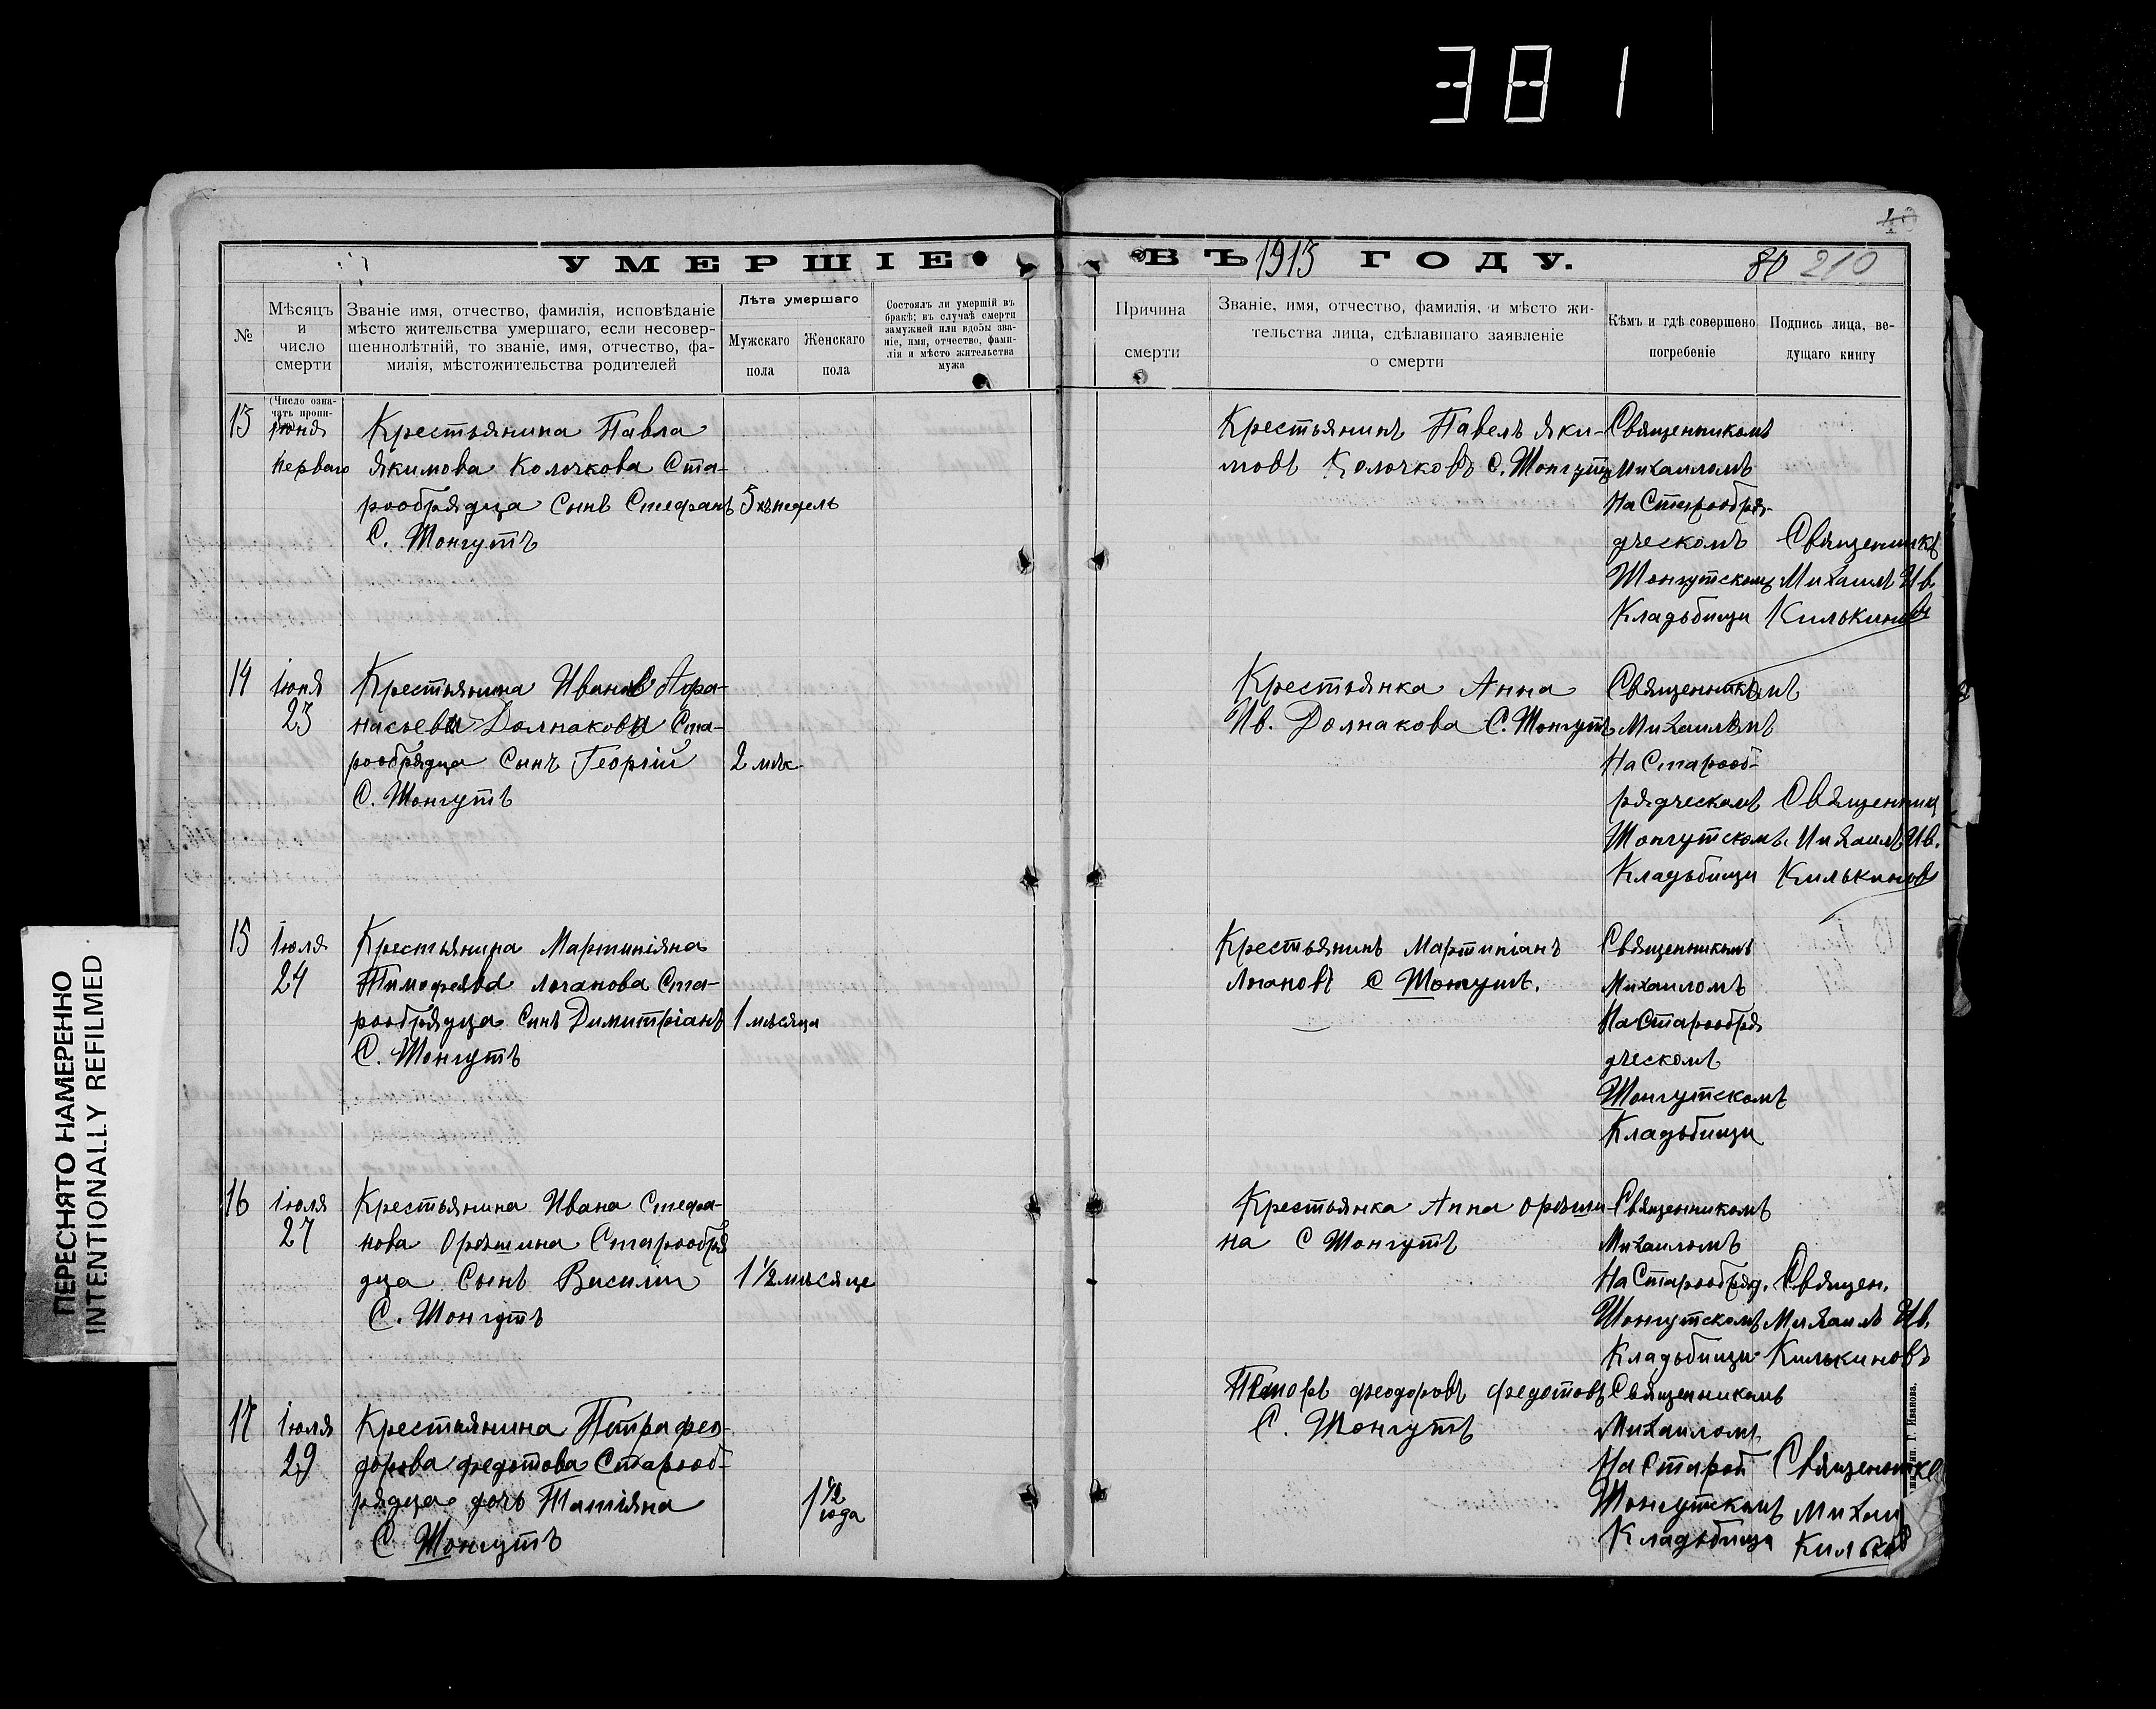 381
40
УМЕРШІЕ ВЪ 1913 ГОДУ.
80 210
№
Мѣсяцъ
и
число
смерти
Званіе имя, отчество, фамилія, исповѣданіе
мѣсто жительства умершаго, если несовер-
шеннолѣтній, то званіе, имя, отчество, фа-
милія, мѣстожительства родителей
Лѣта умершаго
Мужскаго
пола
Женскаго
пола
Состоялъ ли умершій въ
бракѣ; въ случаѣ смерти
замужней или вдовы зва-
ніе, имя, отчество, фами-
лія и мѣсто жительства
мужа
Причина
смерти
Званіе, имя, отчество, фамилія, и мѣсто жи-
тельства лица, сдѣлавшаго заявленіе
о смерти
Кѣмъ и гдѣ совершено
погребеніе
Подпись лица, ве-
дущаго книгу
(Число озна-
чать пропи-
13
іюня
перваго
Крестьянина Павла
Якимова Колочкова Ста-
рообрядца Сынъ Стефанъ
С. Шонгутъ
5 хъ недель
Крестьянинъ Павелъ Яки-
мовъ Колочковъ С. Шонгутъ
Священникомъ
Михаиломъ
На Старообря-
дческомъ
Шонгутскомъ
Кладьбищи
Священникъ
Михаилъ Ив.
Килькиновъ
14
іюня
23
Крестьянина Иванов Афа-
насьева Долнакова Ста-
рообрядца Сынъ Георгій
С. Шонгутъ
2 мѣс
Крестьянка Анна
Ив. Долнакова С. Шонгутъ
Священникомъ
Михаиломъ
На Старооб-
рядческомъ
Шонгутскомъ
Кладьбищи
Священник
Михаилъ Ив.
Килькинов
15
Іюля
24
Крестьянина Мартиніяна
Тимофеява Логанова Ста-
рообрядца Синъ Димитріанъ
С. Шонгутъ
1 мѣсяца
Крестьянинъ Мартиніанъ
Логановъ С Шонгутъ.
Священникомъ
Михаиломъ
На Старообря
дческомъ
Шонгутскомъ
Кладьбищи
16
іюля
27
Крестьянина Ивана Стефа-
нова Орѣшина Старообря
дца Сынъ Василии
С. Шонгутъ
1 1/2 мѣсяце
Крестьянка Анна Орѣши-
на С Шонгутъ
Священникомъ
Михаиломъ
На Старообряд.
Шонгутскомъ
Кладьбищи
Священ.
Михаилъ Ив.
Килькиновъ
17
іюля
29
Крестьянина Петра Фео-
дорова Федотова Старооб-
рядца дочь Татіяна
С Шонгутъ
1 1/2
года
Феодоровъ Федотовъ
С. Шонгутъ
Священникомъ
Михаиломъ
На Староб
Шонгутскомъ
Кладьбища
Священнике
Михаи
Кильков
тип. Г. Иванова.
ПЕРЕСНЯТО НАМЕРЕННО
INTENTIONALLY REFILMED